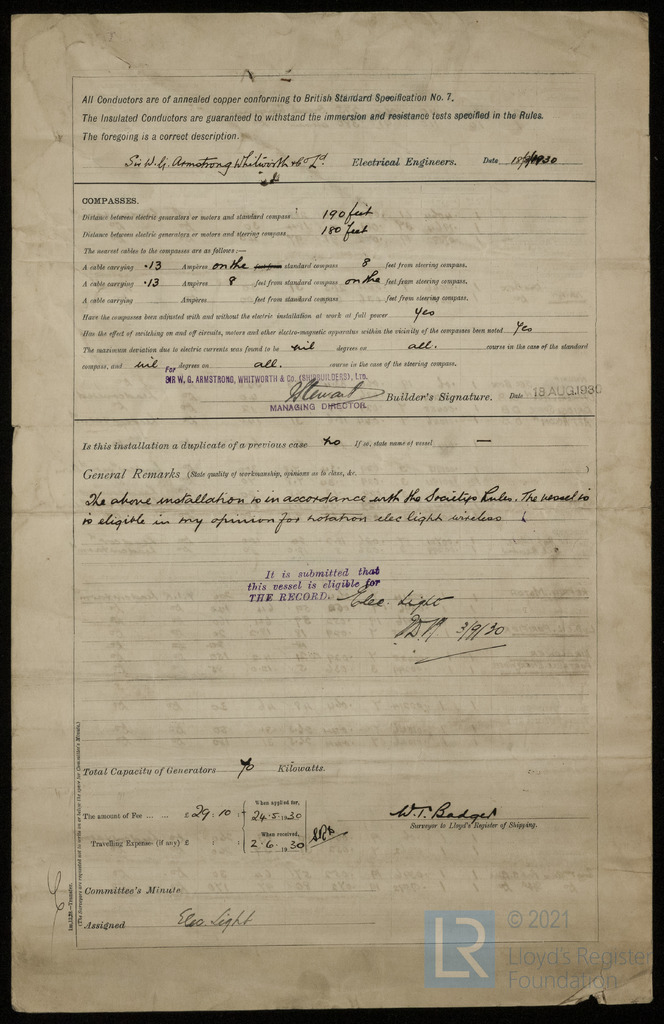 All Conductors are of annealed copper conforming to British Standard Specification No. 7.
The Insulated Conductors are guaranteed to withstand the immersion and resistance tests specified in the Rules.
The foregoing is a correct description.
Sir W. G. Armstrong Whitworth & Co Ld Electrical Engineers. Date 1930
COMPASSES.
Distance between electric generators or motors and standard compass 190 feet
Distance between electric generators or motors and steering compass 180 feet
The nearest cables to the compasses are as follows:—
A cable carrying .13 Ampères on the standard compass 8 feet from steering compass.
A cable carrying .13 Ampères 8 feet from standard compass on the feet from steering compass.
A cable carrying Ampères feet from standard compass feet from steering compass.
Have the compasses been adjusted with and without the electric installation at work at full power Yes
Has the effect of switching on and off circuits, motors and other electro-magnetic apparatus within the vicinity of the compasses been noted Yes
The maximum deviation due to electric currents was found to be nil degrees on all. course in the case of the standard
compass, and nil degrees on all. course in the case of the steering compass.
For
SIR W. G. ARMSTRONG, WHITWORTH & Co. (SHIPBUILDERS), LTD.
Stewart Builder's Signature. Date 18 AUG. 1930
MANAGING DIRECTOR
Is this installation a duplicate of a previous case no If so, state name of vessel —
General Remarks (State quality of workmanship, opinions as to class, &c. )
The above installation is in accordance with the Society's Rules. The vessel is
is eligible in my opinion for notation elec light wireless
It is submitted that
this vessel is eligible for
THE RECORD. Elec. Light
3/9/30
Total Capacity of Generators 70 Kilowatts.
The amount of Fee ... ... £ 29 : 10 : When applied for, 24.5.1930
Travelling Expenses (if any) £ : : When received, 2.6.1930
W. T. Badger
Surveyor to Lloyd's Register of Shipping.
Committee's Minute
Assigned Elec. Light
(The Surveyors are requested not to write on or below the space for Committee's Minute.)
LR © 2021
Lloyd's Register
Foundation